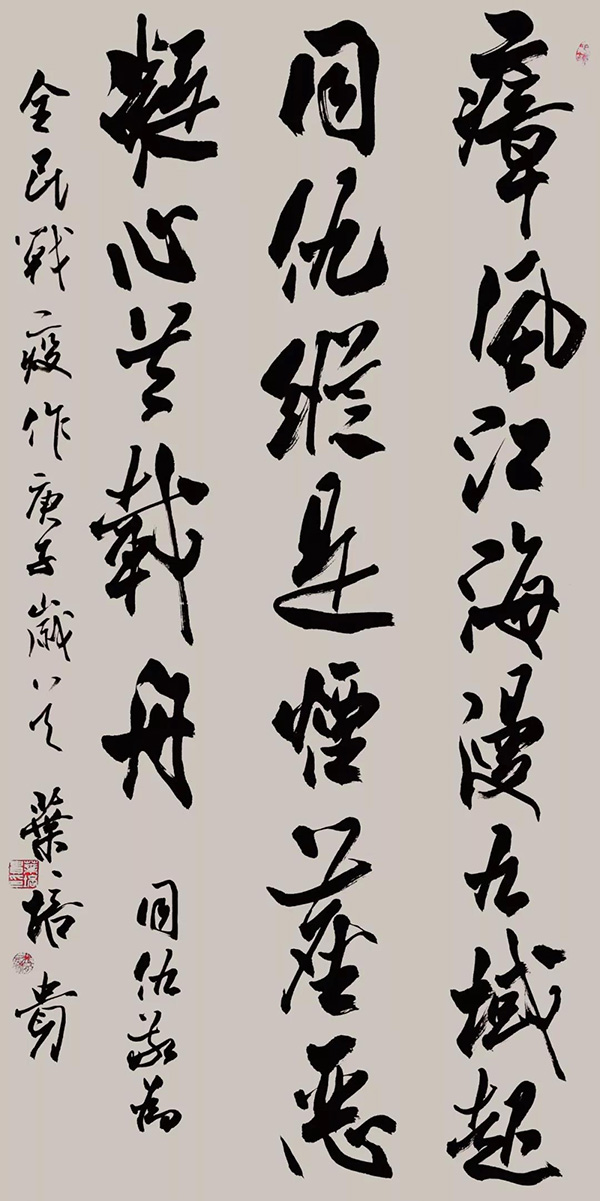 瘴風江海漫九域起
同仇縱是煙塵惡
凝心共載舟 同仇敬為
全民戰疫作庚子歲 葉培貴